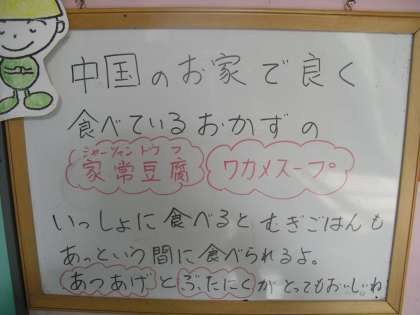 中国のお家で良く
食べているおかずの
ジャーツァンドウフ
家常豆腐 ワカメスープ
いっしょに食べるとむぎごはんも
あっという間に食べられるよ。
あつあげとぶたにくがとってもおいしいね